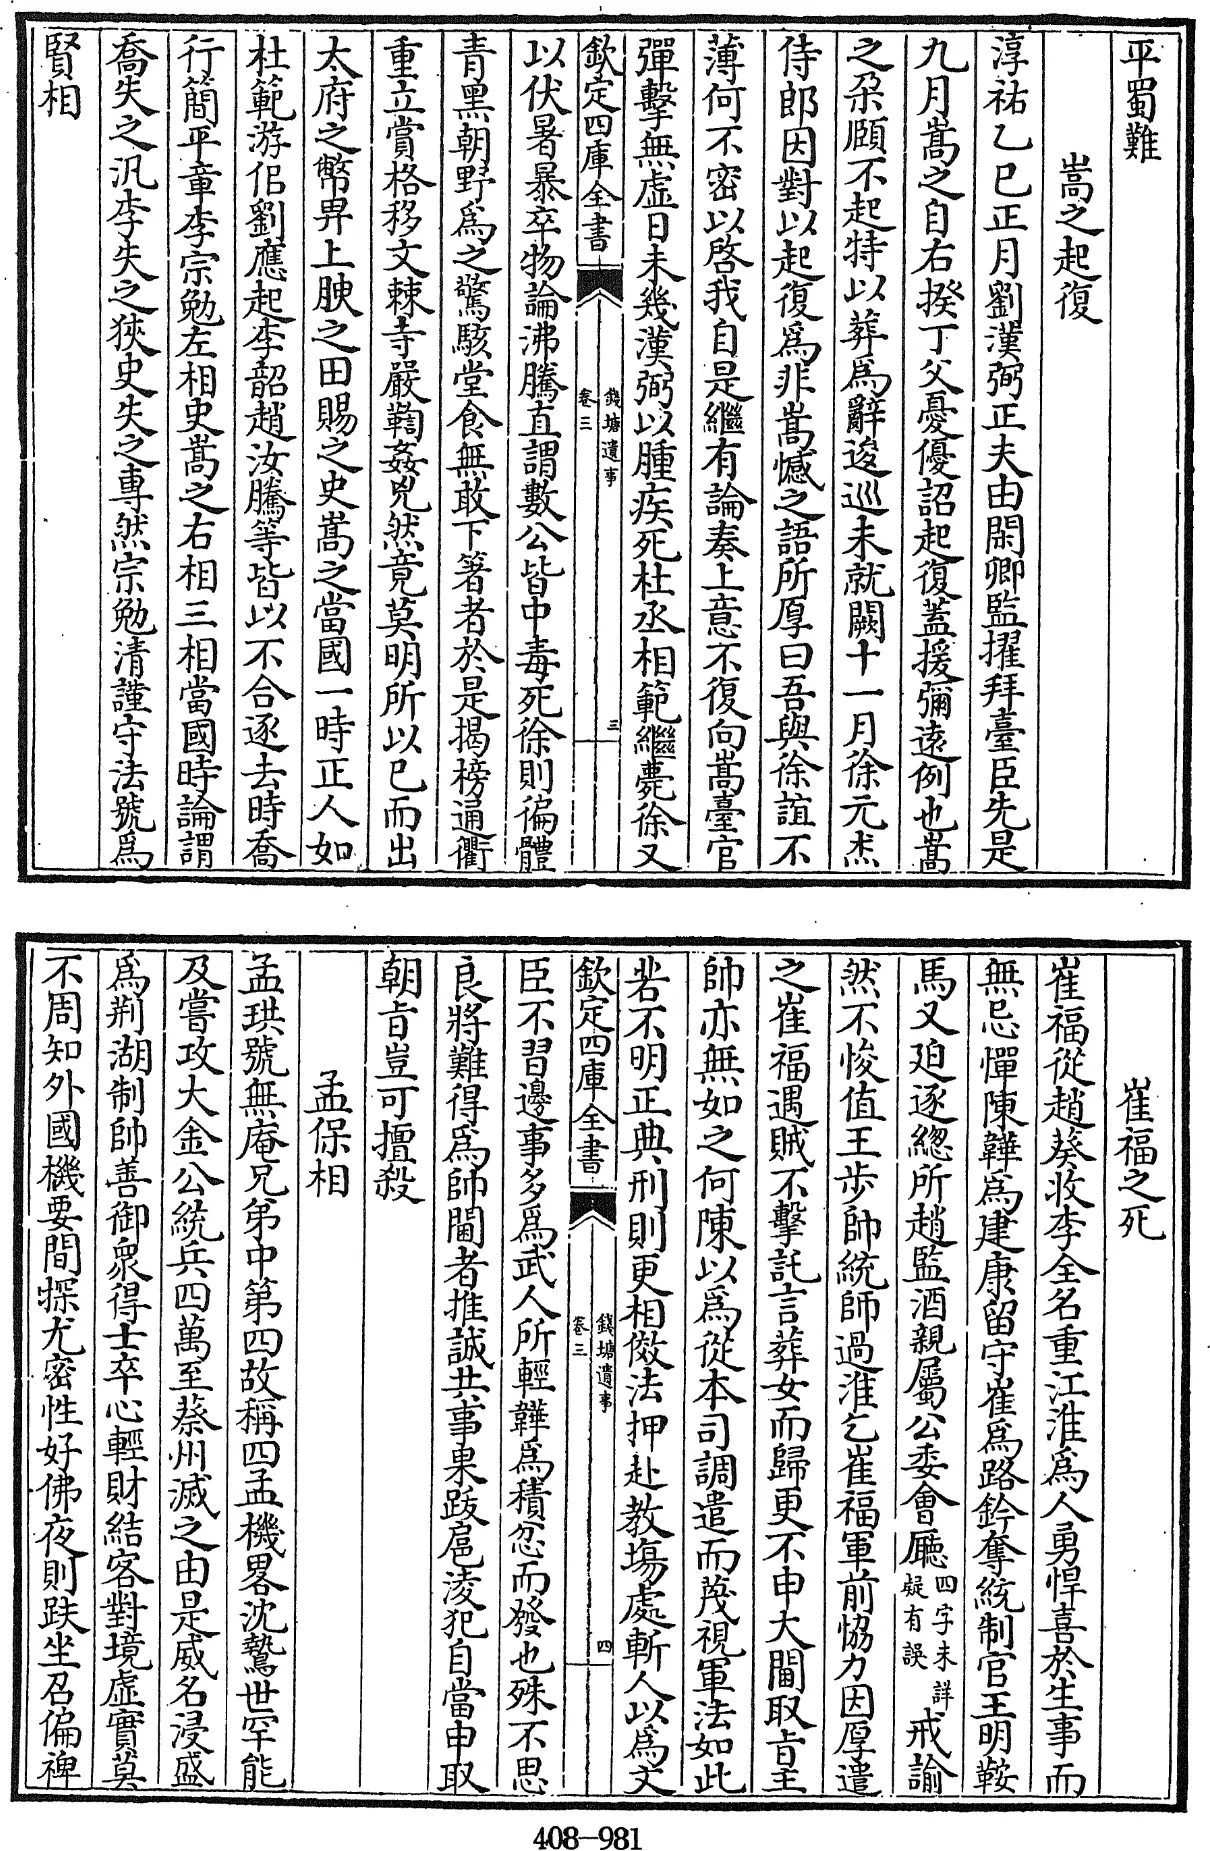 平蜀難
嵩之起復
淳祐乙巳正月劉漢弼正夫由閑卿監擢拜臺臣先是
九月嵩之自右揆丁父憂優詔起復蓋援彌遠例也嵩
之朶頤不起特以葬爲辭逡巡未就闕十一月徐元杰
侍郎因對以起復爲非嵩憾之語所厚曰吾與徐誼不
薄何不密以啓我自是繼有論奏上意不復向嵩臺官
彈擊無虛日未幾漢弼以腫疾死杜丞相範繼薨徐又
欽定四庫全書
錢塘遺事
卷三
三
以伏暑暴卒物論沸騰直謂數公皆中毒死徐則徧體
青黑朝野爲之驚駭堂食無敢下箸者於是揭榜通衢
重立賞格移文棘寺嚴鞫姦兇然竟莫明所以已而出
太府之幣畀上腴之田賜之史嵩之當國一時正人如
杜範游侣劉應起李韶趙汝騰等皆以不合逐去時喬
行簡平章李宗勉左相史嵩之右相三相當國時論謂
喬失之汎李失之狹史失之專然宗勉清謹守法號爲
賢相
崔福之死
崔福從趙葵收李全名重江淮爲人勇悍喜於生事而
無忌憚陳韡爲建康留守崔爲路鈐奪統制官王明鞍
馬又廹逐總所趙監酒親屬公委會廳四字未詳疑有誤戒諭
然不悛值王步帥統師過淮乞崔福軍前恊力因厚遣
之崔福遇賊不擊託言葬女而歸更不申大閫取旨主
帥亦無如之何陳以爲從本司調遣而蔑視軍法如此
若不明正典刑則更相傚法押赴教塲處斬人以爲文
欽定四庫全書
錢塘遺事
卷三
四
臣不習邊事多爲武人所輕韡爲積忿而發也殊不思
良將難得爲帥閫者推誠共事果跋扈凌犯自當申取
朝旨豈可擅殺
孟保相
孟珙號無庵兄弟中第四故稱四孟機畧沈鷙世罕能
及嘗攻大金公統兵四萬至蔡州滅之由是威名浸盛
爲荆湖制帥善御衆得士卒心輕財結客對境虛實莫
不周知外國機要間探尤密性好佛夜則趺坐召偏裨
408-981